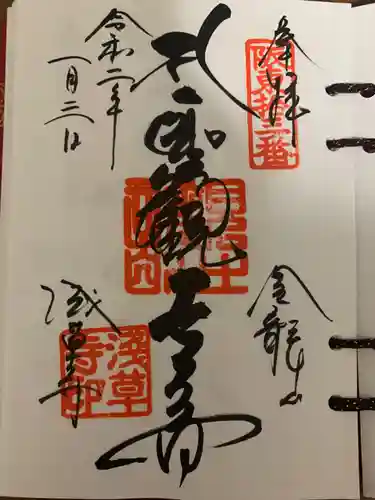 奉拝
阪東第十三番
金龍山
聖観世音
令和二年
一月三日
浅草寺
浅草寺印